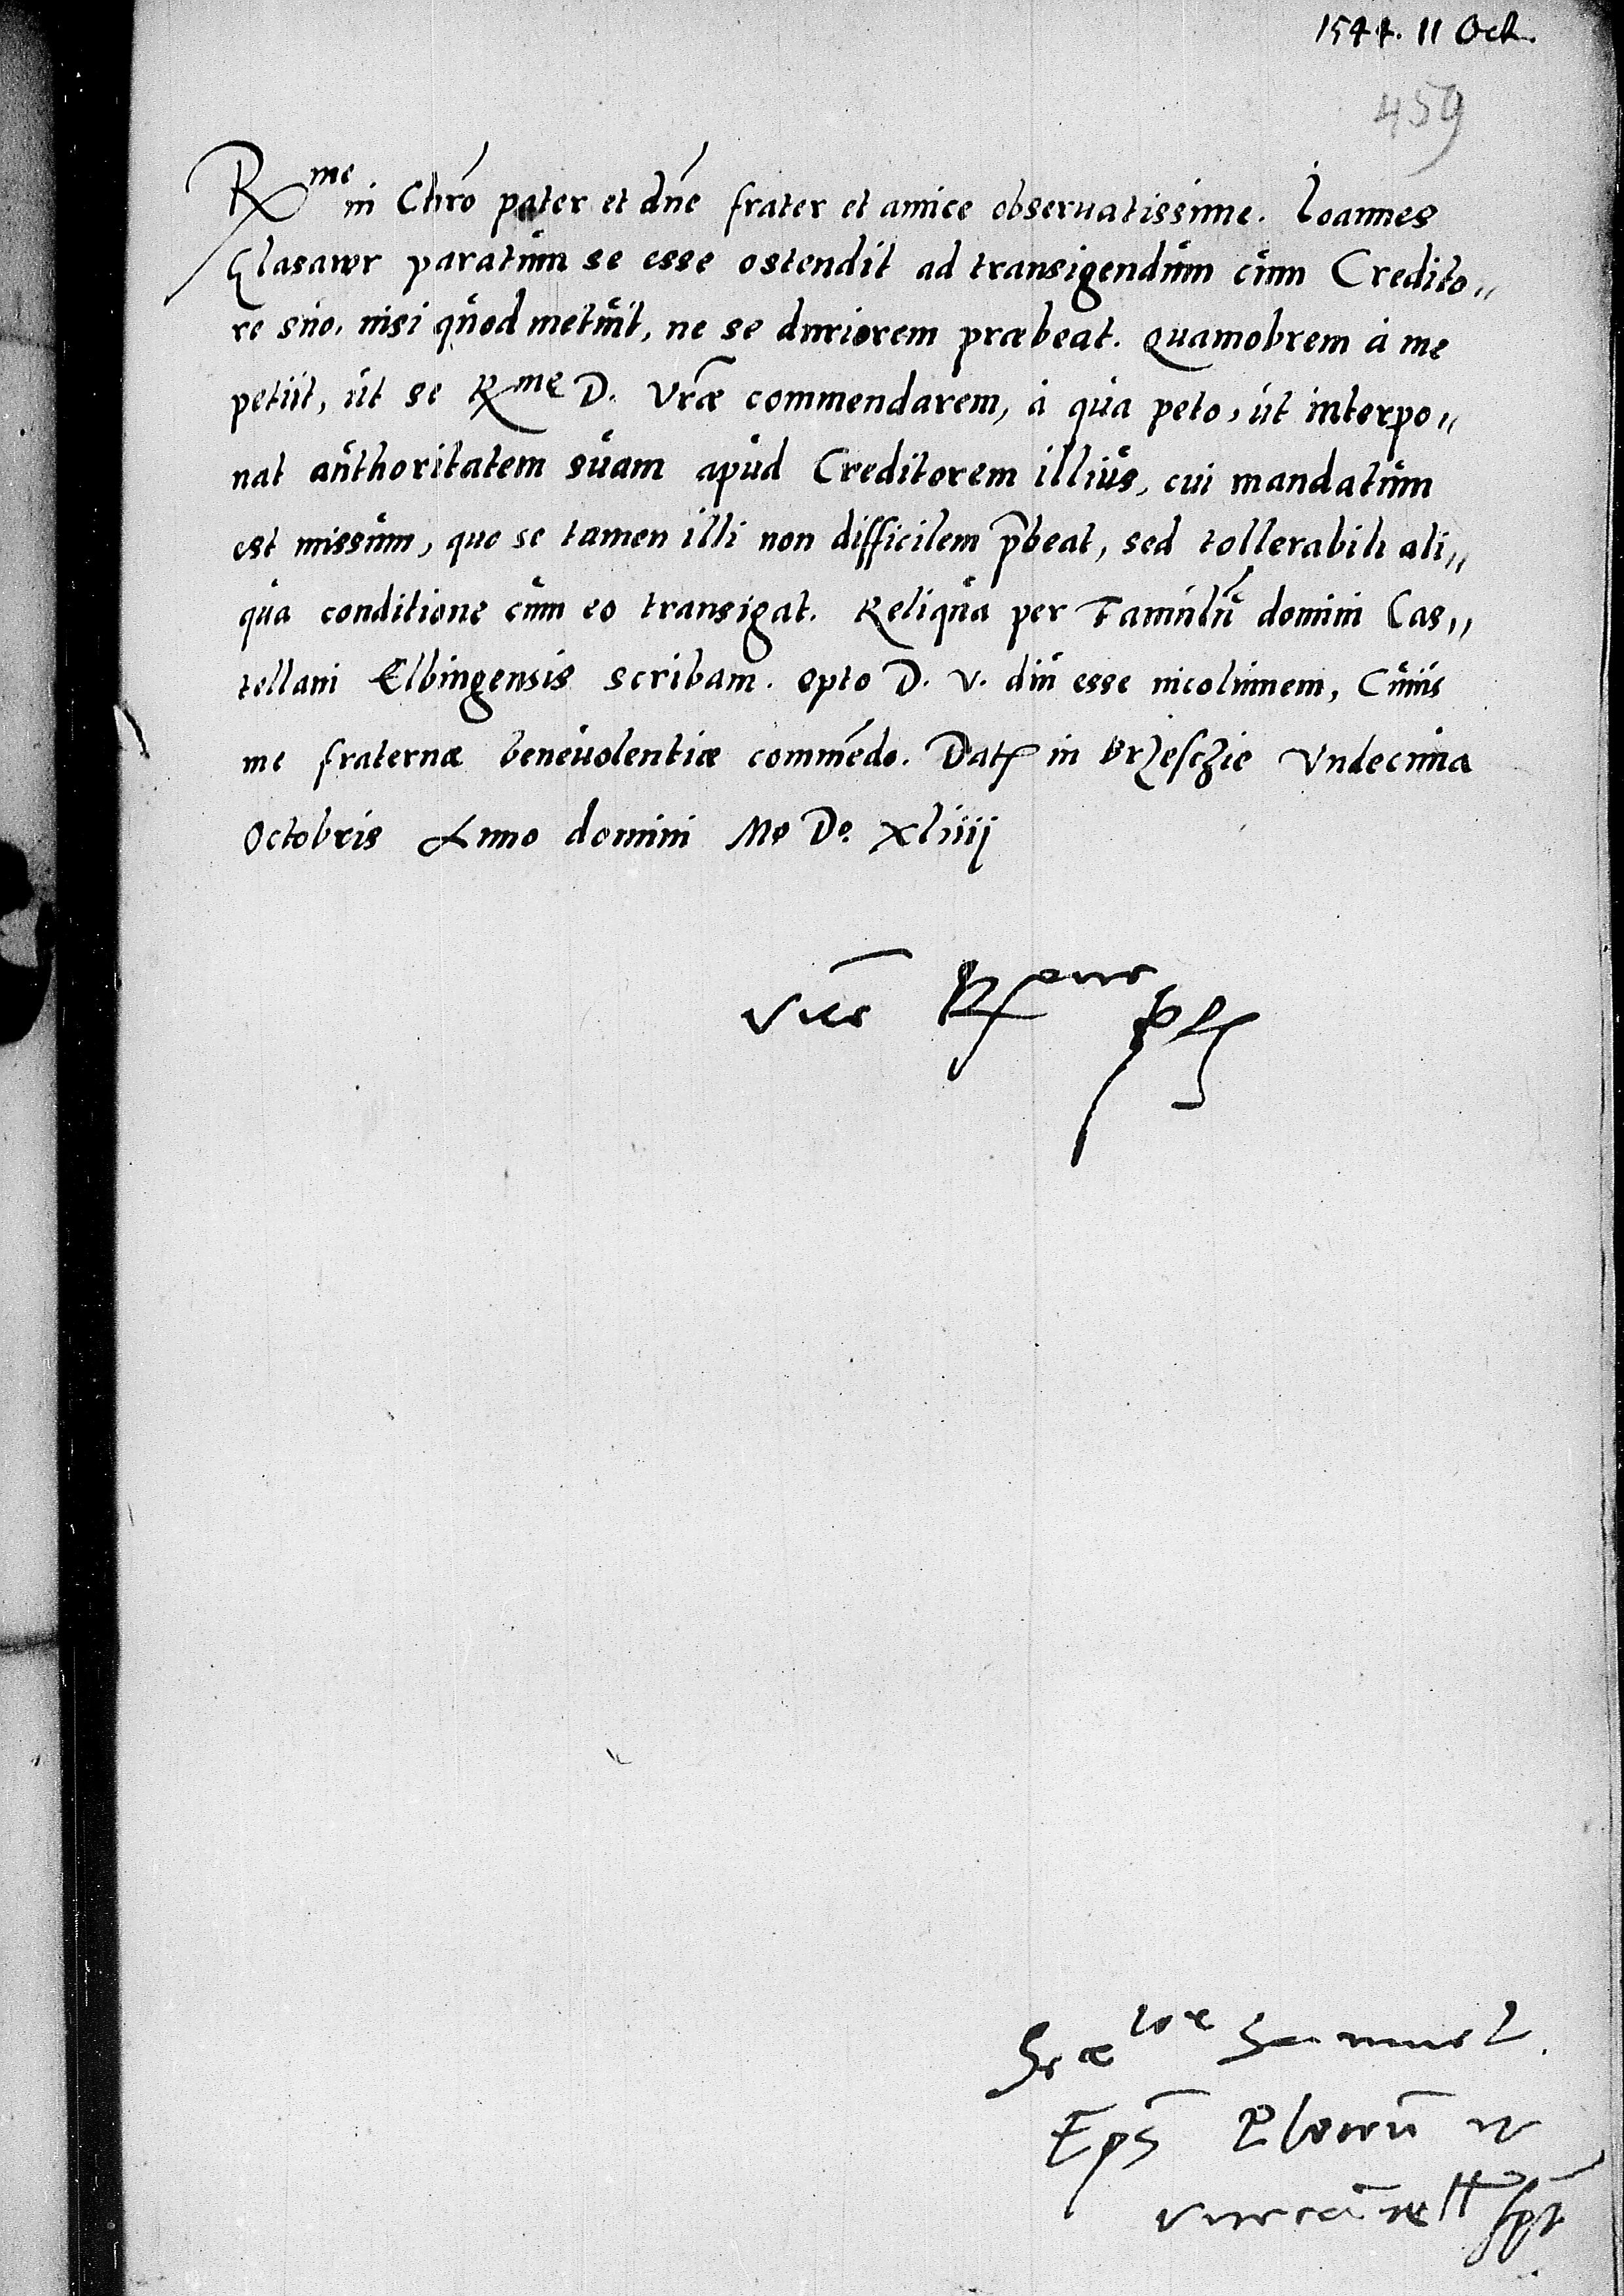 1544. 11 Oct.
459
Rme in Chro pater et dne frater et amice obseruatissime. Ioannes
Glasawr paratum se esse ostendit ad transigendum cum Credito„
re suo, nisi quod metuit, ne se duriorem præbeat. Quamobrem à me
petiit, ut se Rme D. Vræ commendarem, à qua peto, ut interpo„
nat authoritatem suam apud Creditorem illius, cui mandatum
est missum, quo se tamen illi non difficilem pbeat, sed tollerabili ali„
qua conditione cum eo transigat. Reliqua per Famulu domini Cas„
tellani Elbingensis scribam. Opto D. V. diu esse incolumem, Cuius
me fraternæ beneuolentiæ commedo. Dat in Brzesczie Vndecima
Octobris Anno domini Mo Do. Xliiij
Samuel
Eps